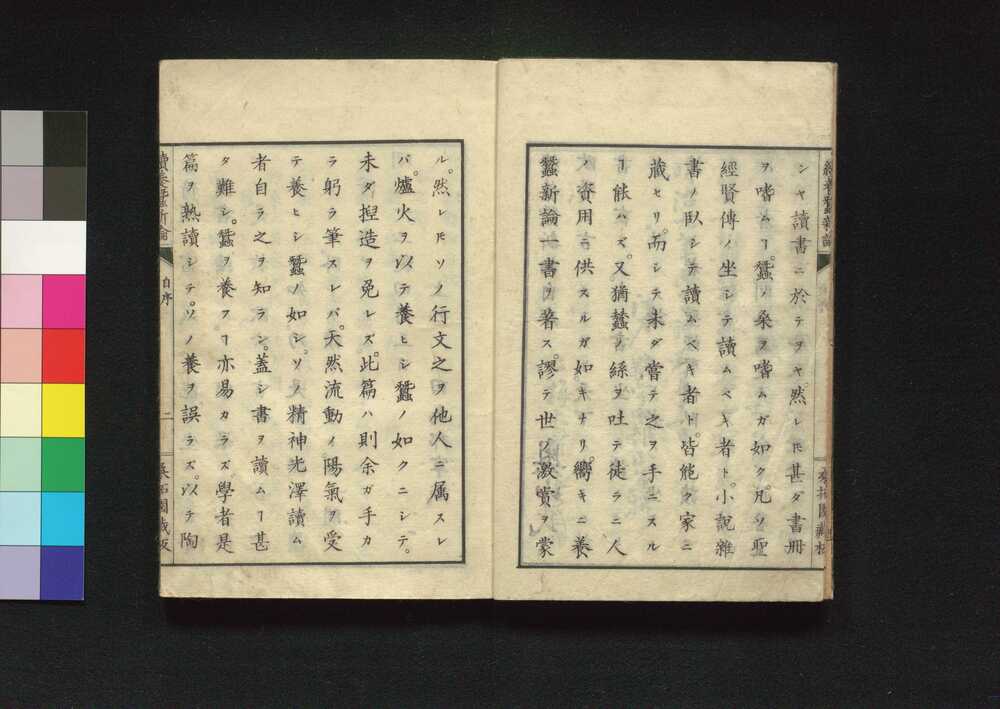 シヤ讀書ニ於テヲヤ。然レ𪜈甚ダ書冊
ヲ嗜ムヿ。蠶ノ桑ヲ嗜ムガ如ク。凡ソ聖
經賢傳ノ坐シテ讀ムベキ者ト。小説雜
書ノ臥シテ讀ムベキ者ト。皆能ク家ニ
藏セリ。而シテ未ダ嘗テ之ヲ手ニスル
ヿ能ハズ。又猶蠶ノ絲ヲ吐テ徒ラニ人
ノ資用ニ供スルガ如キナリ。嚮キニ養
蠶新論一書ヲ著ス。謬テ世ノ激賞ヲ蒙
ル。然レ𪜈ソノ行文之ヲ他人ニ属スレ
バ。爐火ヲ以テ養ヒシ蠶ノ如クニシテ。
未ダ揑造ヲ免レズ。此篇ハ則余ガ手カ
ラ躬ラ筆スレバ。天然流動イ陽氣ヲ受
テ養ヒシ蠶ノ如シ。ソノ精神光澤讀ム
者自ラ之ヲ知ラン。蓋シ書ヲ讀ムヿ甚
タ難シ。蠶ヲ養フヿ亦易カラズ。學者是
篇ヲ熟讀シテ。ソノ養ヲ誤ラズ。以テ陶
續養蠶新論
自序
二